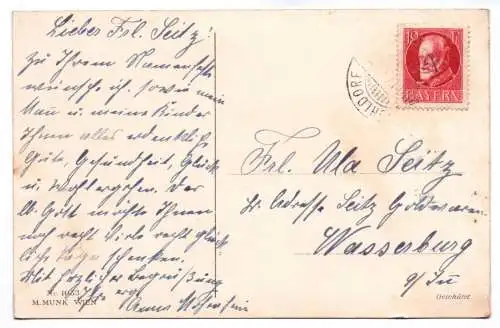 Liebes Frl. Seitz!
Zu Ihrem Namensfeste
wünsche ich, sowie mein
Mann u. meine Kinder
Ihnen alles erdenklich
Gute, Gesundheit, Glück
u. Wohlergehen. Der
lb. Gott möchte Ihnen
noch recht viele recht glück-
liche Tage schenken.
Mit herzlicher Begrüßung
Ihre erg.
Anna
Nr. 1053
M. MUNK WIEN
10 Pf
BAYERN
Frl. Ula Seitz
br. Adresse Seitz Goldwaren
Wasserburg
a/Inn
Geschützt